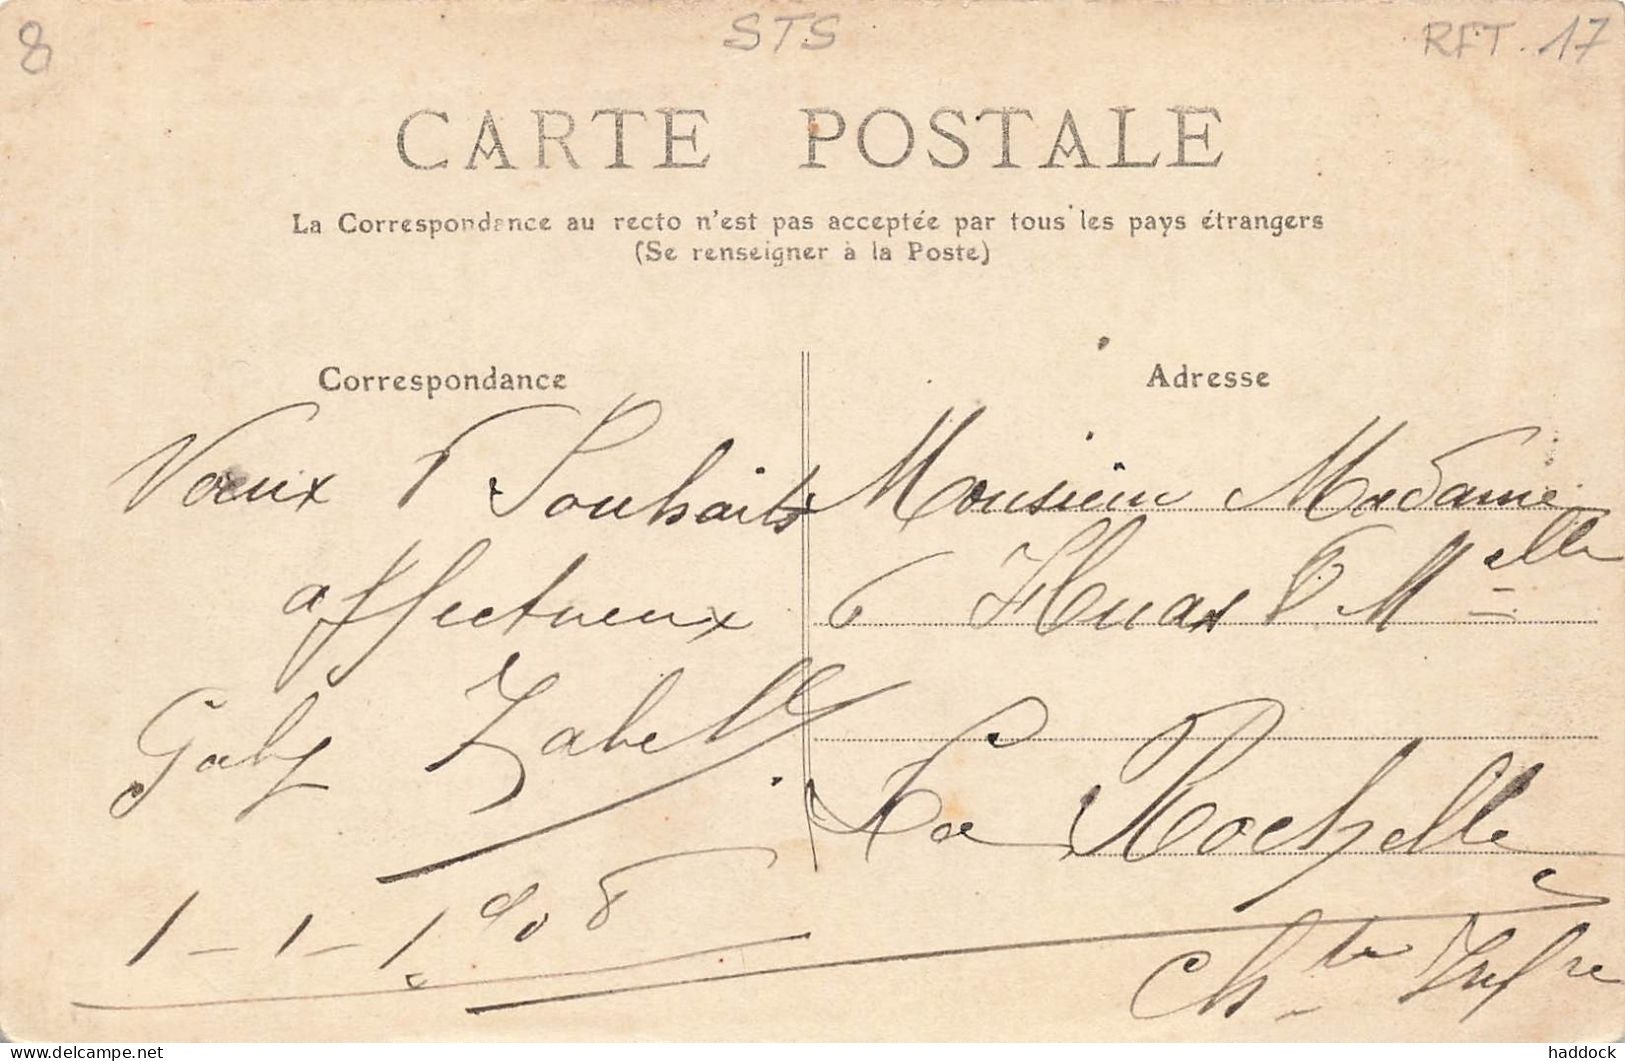 8
STS
RFT. 17
CARTE POSTALE
La Correspondance au recto n'est pas acceptée par tous les pays étrangers
(Se renseigner à la Poste)
Correspondance
Voeux & Souhaits
affectueux
Gaby Zabell
1-1-1908
Adresse
Monsieur Madame
& Huas & Melle
La Rochelle
Chte Infre
delcampe.net
haddock